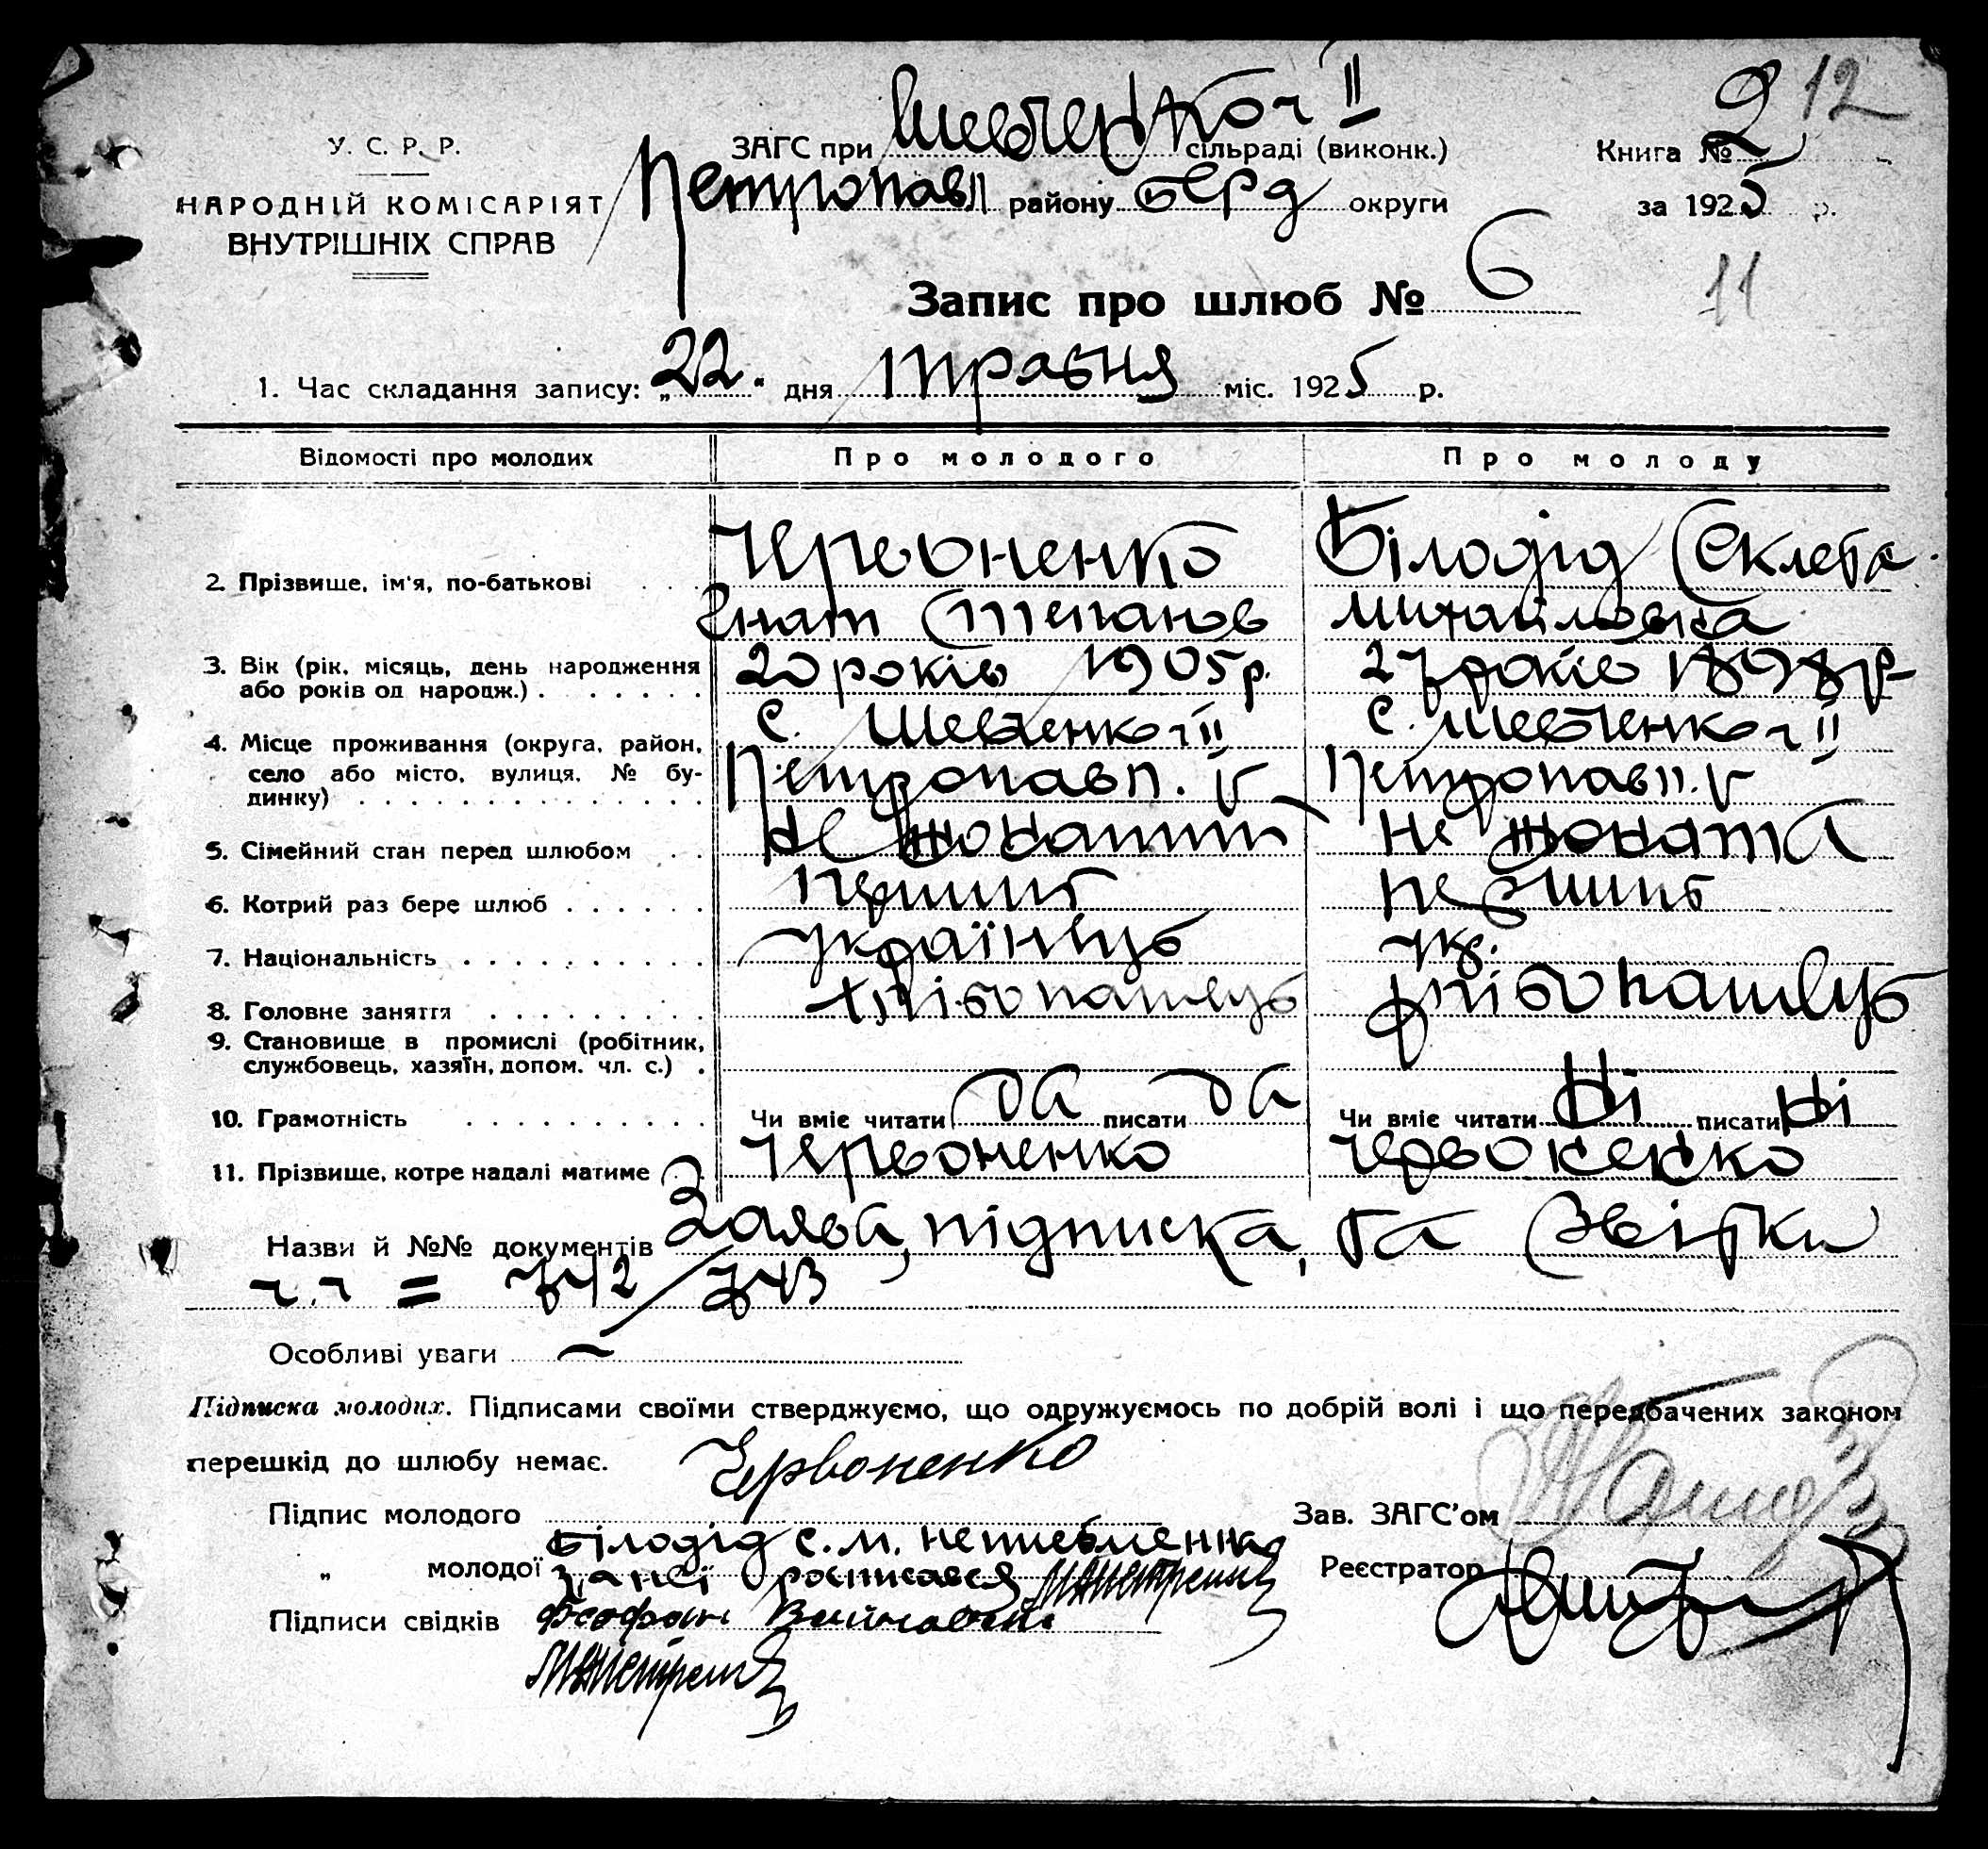 12
У. С. Р. Р.
НАРОДНІЙ КОМІСАРІЯТ
ВНУТРІШНІХ СПРАВ
ЗАГС при Шевченко ч II сільраді (виконк.)
Петропавл району Берд округи
Книга № 2
за 1925 р.
11
Запис про шлюб № 6
1. Час складання запису: „22" дня травня міс. 1925 р.
Відомості про молодих Про молодого Про молоду
2. Прізвище, ім'я, по-батькові Червоненко Білодід Секлета
Гнат Степанов Михайловна
3. Вік (рік, місяць, день народження 20 років 1905 р. 27 років 1898 р
або років од народж.)
4. Місце проживання (округа, район, с. Шевченко ч II с. Шевченко ч II
село або місто, вулиця, № бу- Петропавл. р Петропавл. р
динку)
5. Сімейний стан перед шлюбом не жонатий не жоната
6. Котрий раз бере шлюб перший перший
7. Національність українець укр.
8. Головне заняття хлібопашець хлібопашець
9. Становище в промислі (робітник,
службовець, хазяїн, допом. чл. с.)
10. Грамотність Чи вміє читати да писати да Чи вміє читати Ні писати Ні
11. Прізвище, котре надалі матиме Червоненко Червоненко
Назви й №№ документів Заява, підписка, та звітки
ч.ч = 742/743
Особливі уваги —
Підписка молодих. Підписами своїми стверджуємо, що одружуємось по добрій волі і що передбачених законом
перешкід до шлюбу немає.
Підпис молодого Червоненко
Зав. ЗАГС'ом
„ молодої Білодід С. М. неписьменна
за неї росписався
Реєстратор
Підписи свідків Феофан